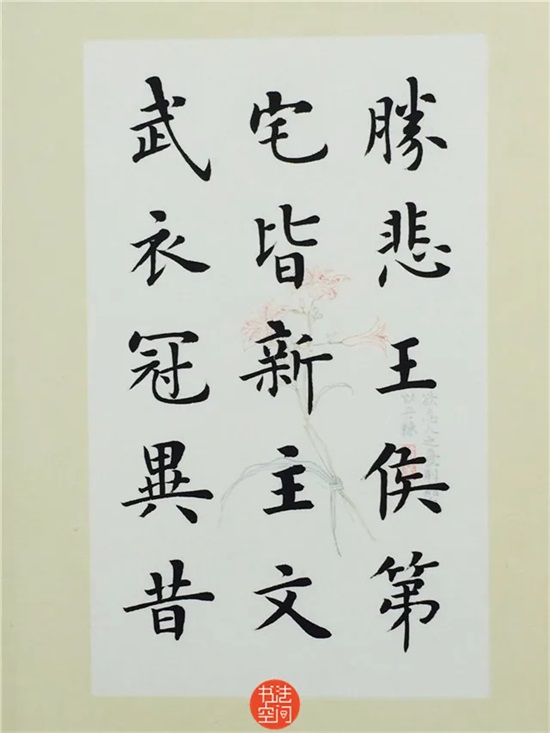 勝悲王侯第
宅皆新主文
武衣冠異昔
书法
空间